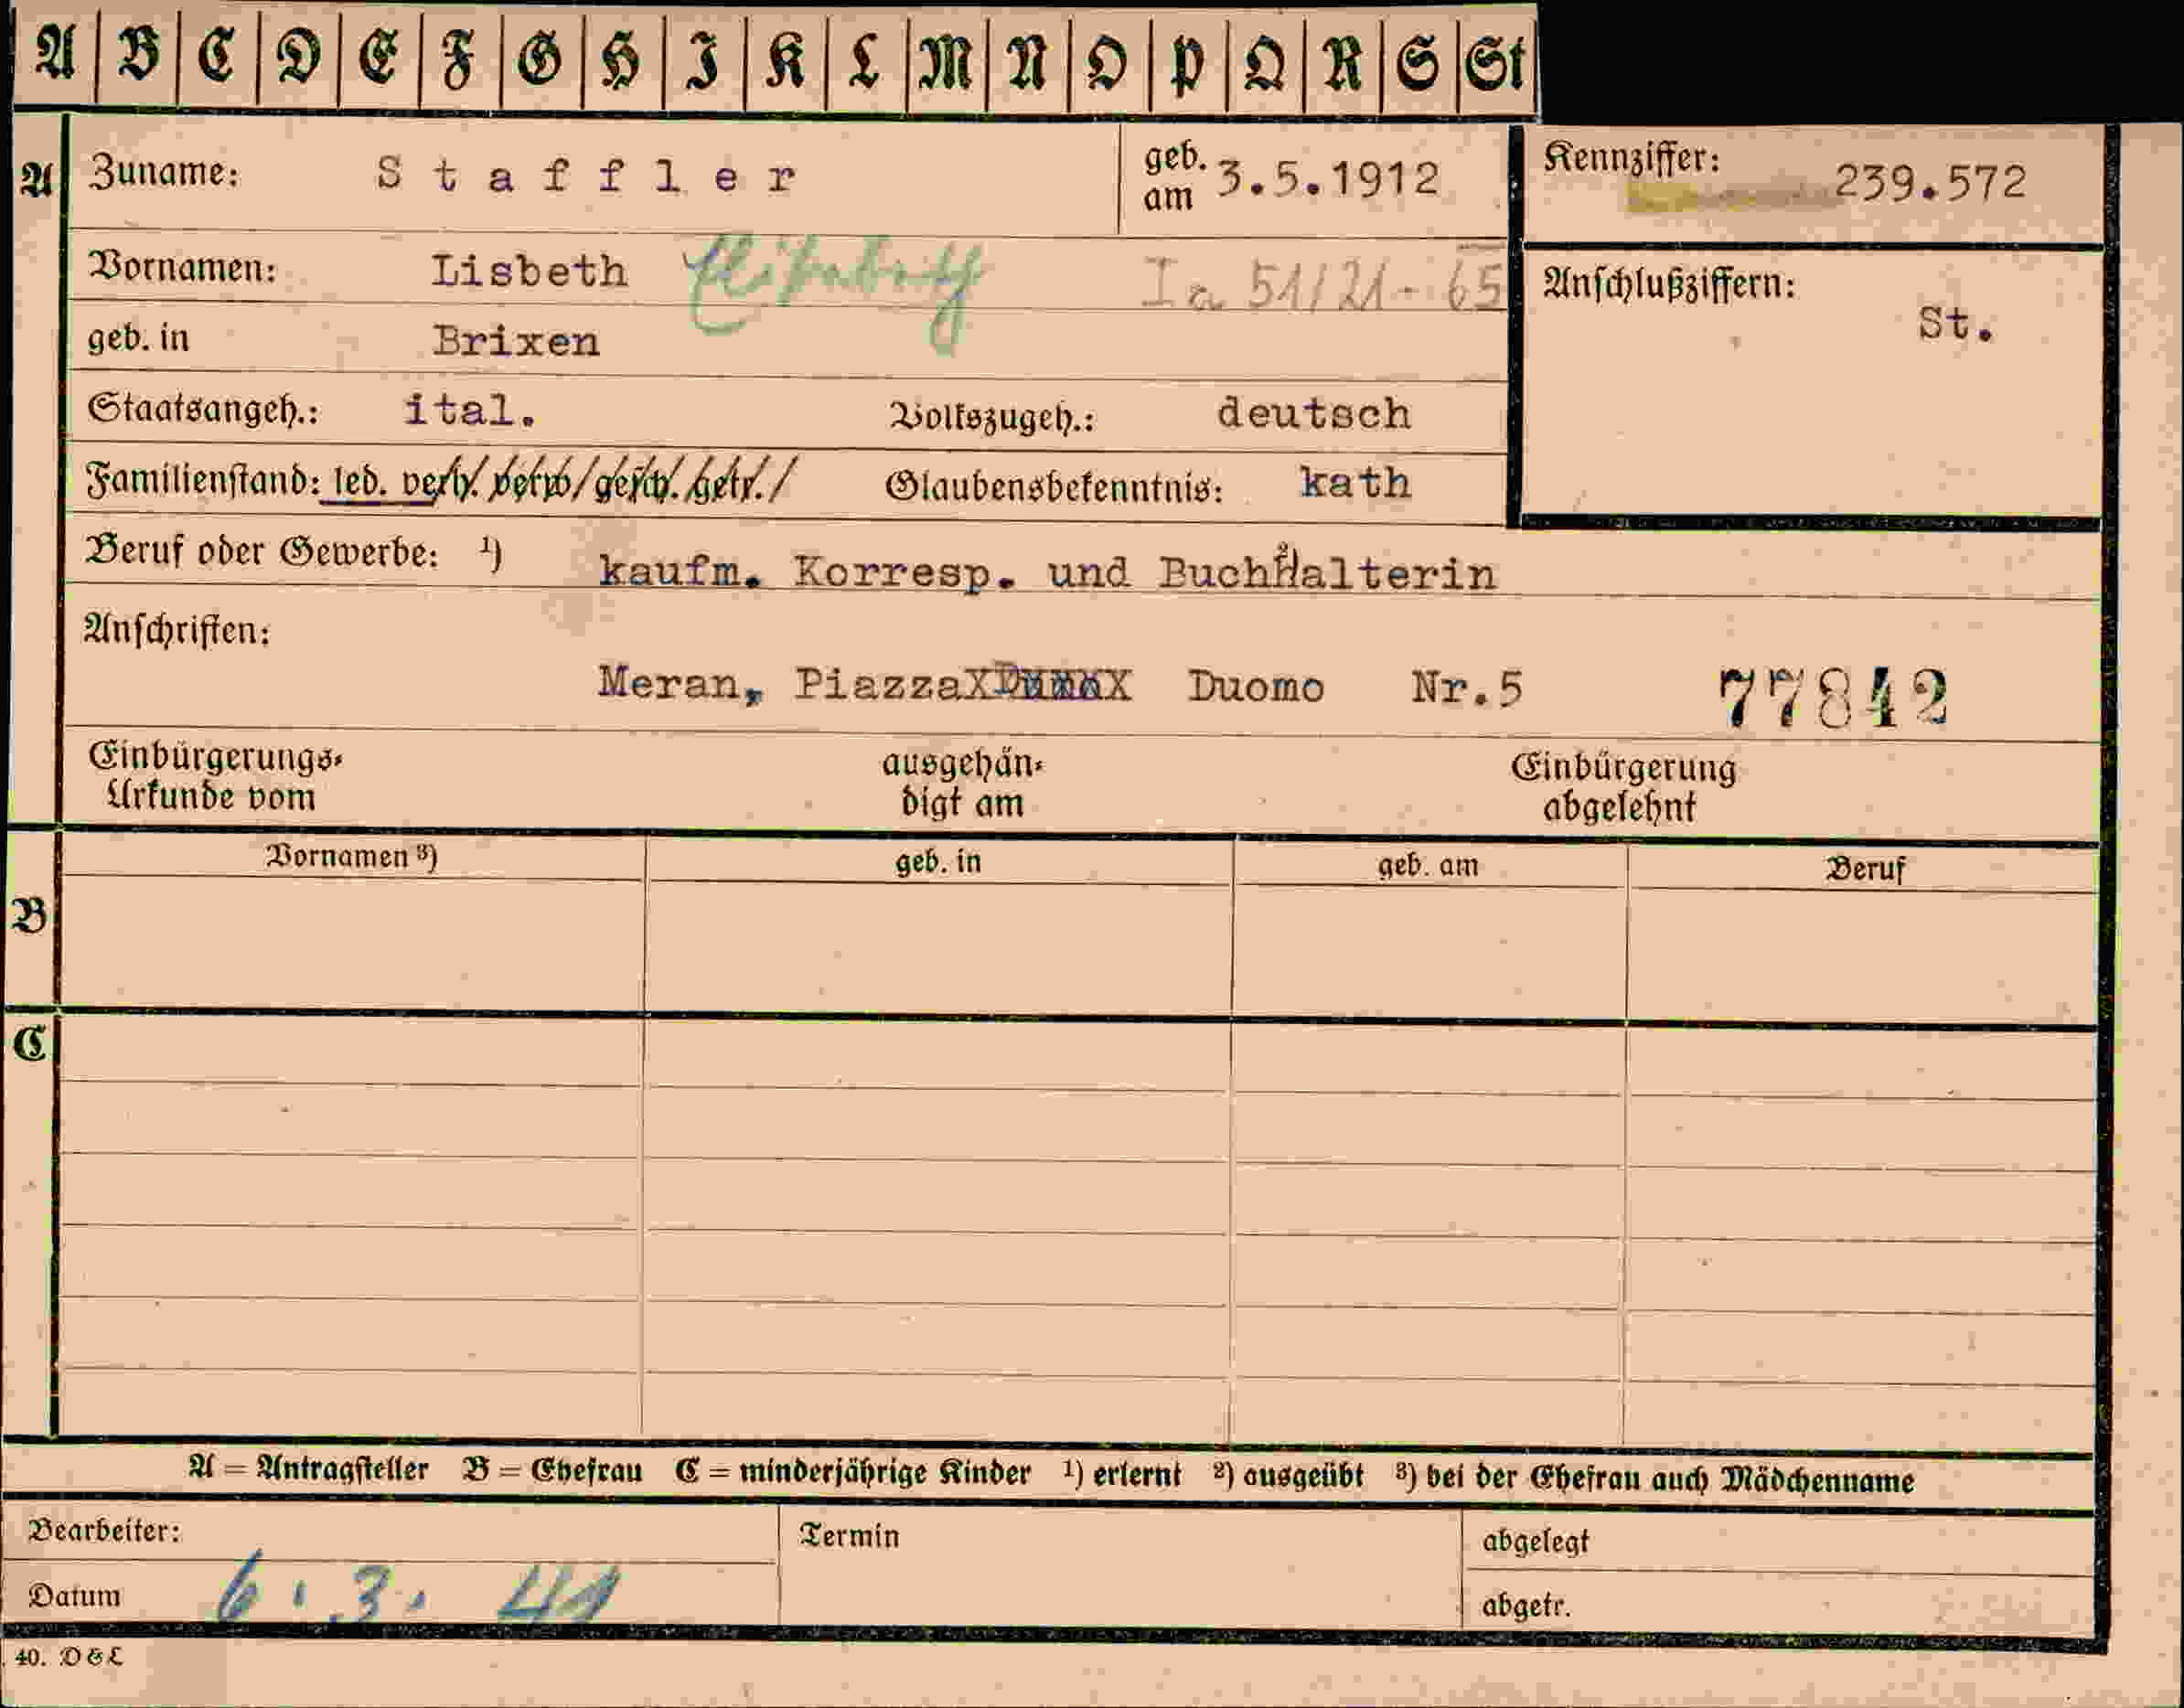 A B C D E F G H I K L M N O P Q R S St
A Zuname: Staffler geb. am 3.5.1912 Kennziffer: 239.572
Vornamen: Lisbeth Elisabeth Ia 51/21-65 Anschlußziffern: St.
geb. in Brixen
Staatsangeh.: ital. Volkszugeh.: deutsch
Familienstand: led. verh. verw. gesch. getr. Glaubensbekenntnis: kath
Beruf oder Gewerbe: ¹) kaufm. Korresp. und Buchhalterin
Anschriften:
Meran, Piazza Duomo Nr.5 77842
Einbürgerungs- ausgehän- Einbürgerung
Urkunde vom digt am abgelehnt
Vornamen ³) geb. in geb. am Beruf
B
C
A = Antragsteller B = Ehefrau C = minderjährige Kinder ¹) erlernt ²) ausgeübt ³) bei der Ehefrau auch Mädchenname
Bearbeiter: Termin abgelegt
Datum 6.3.41 abgetr.
40. D & L